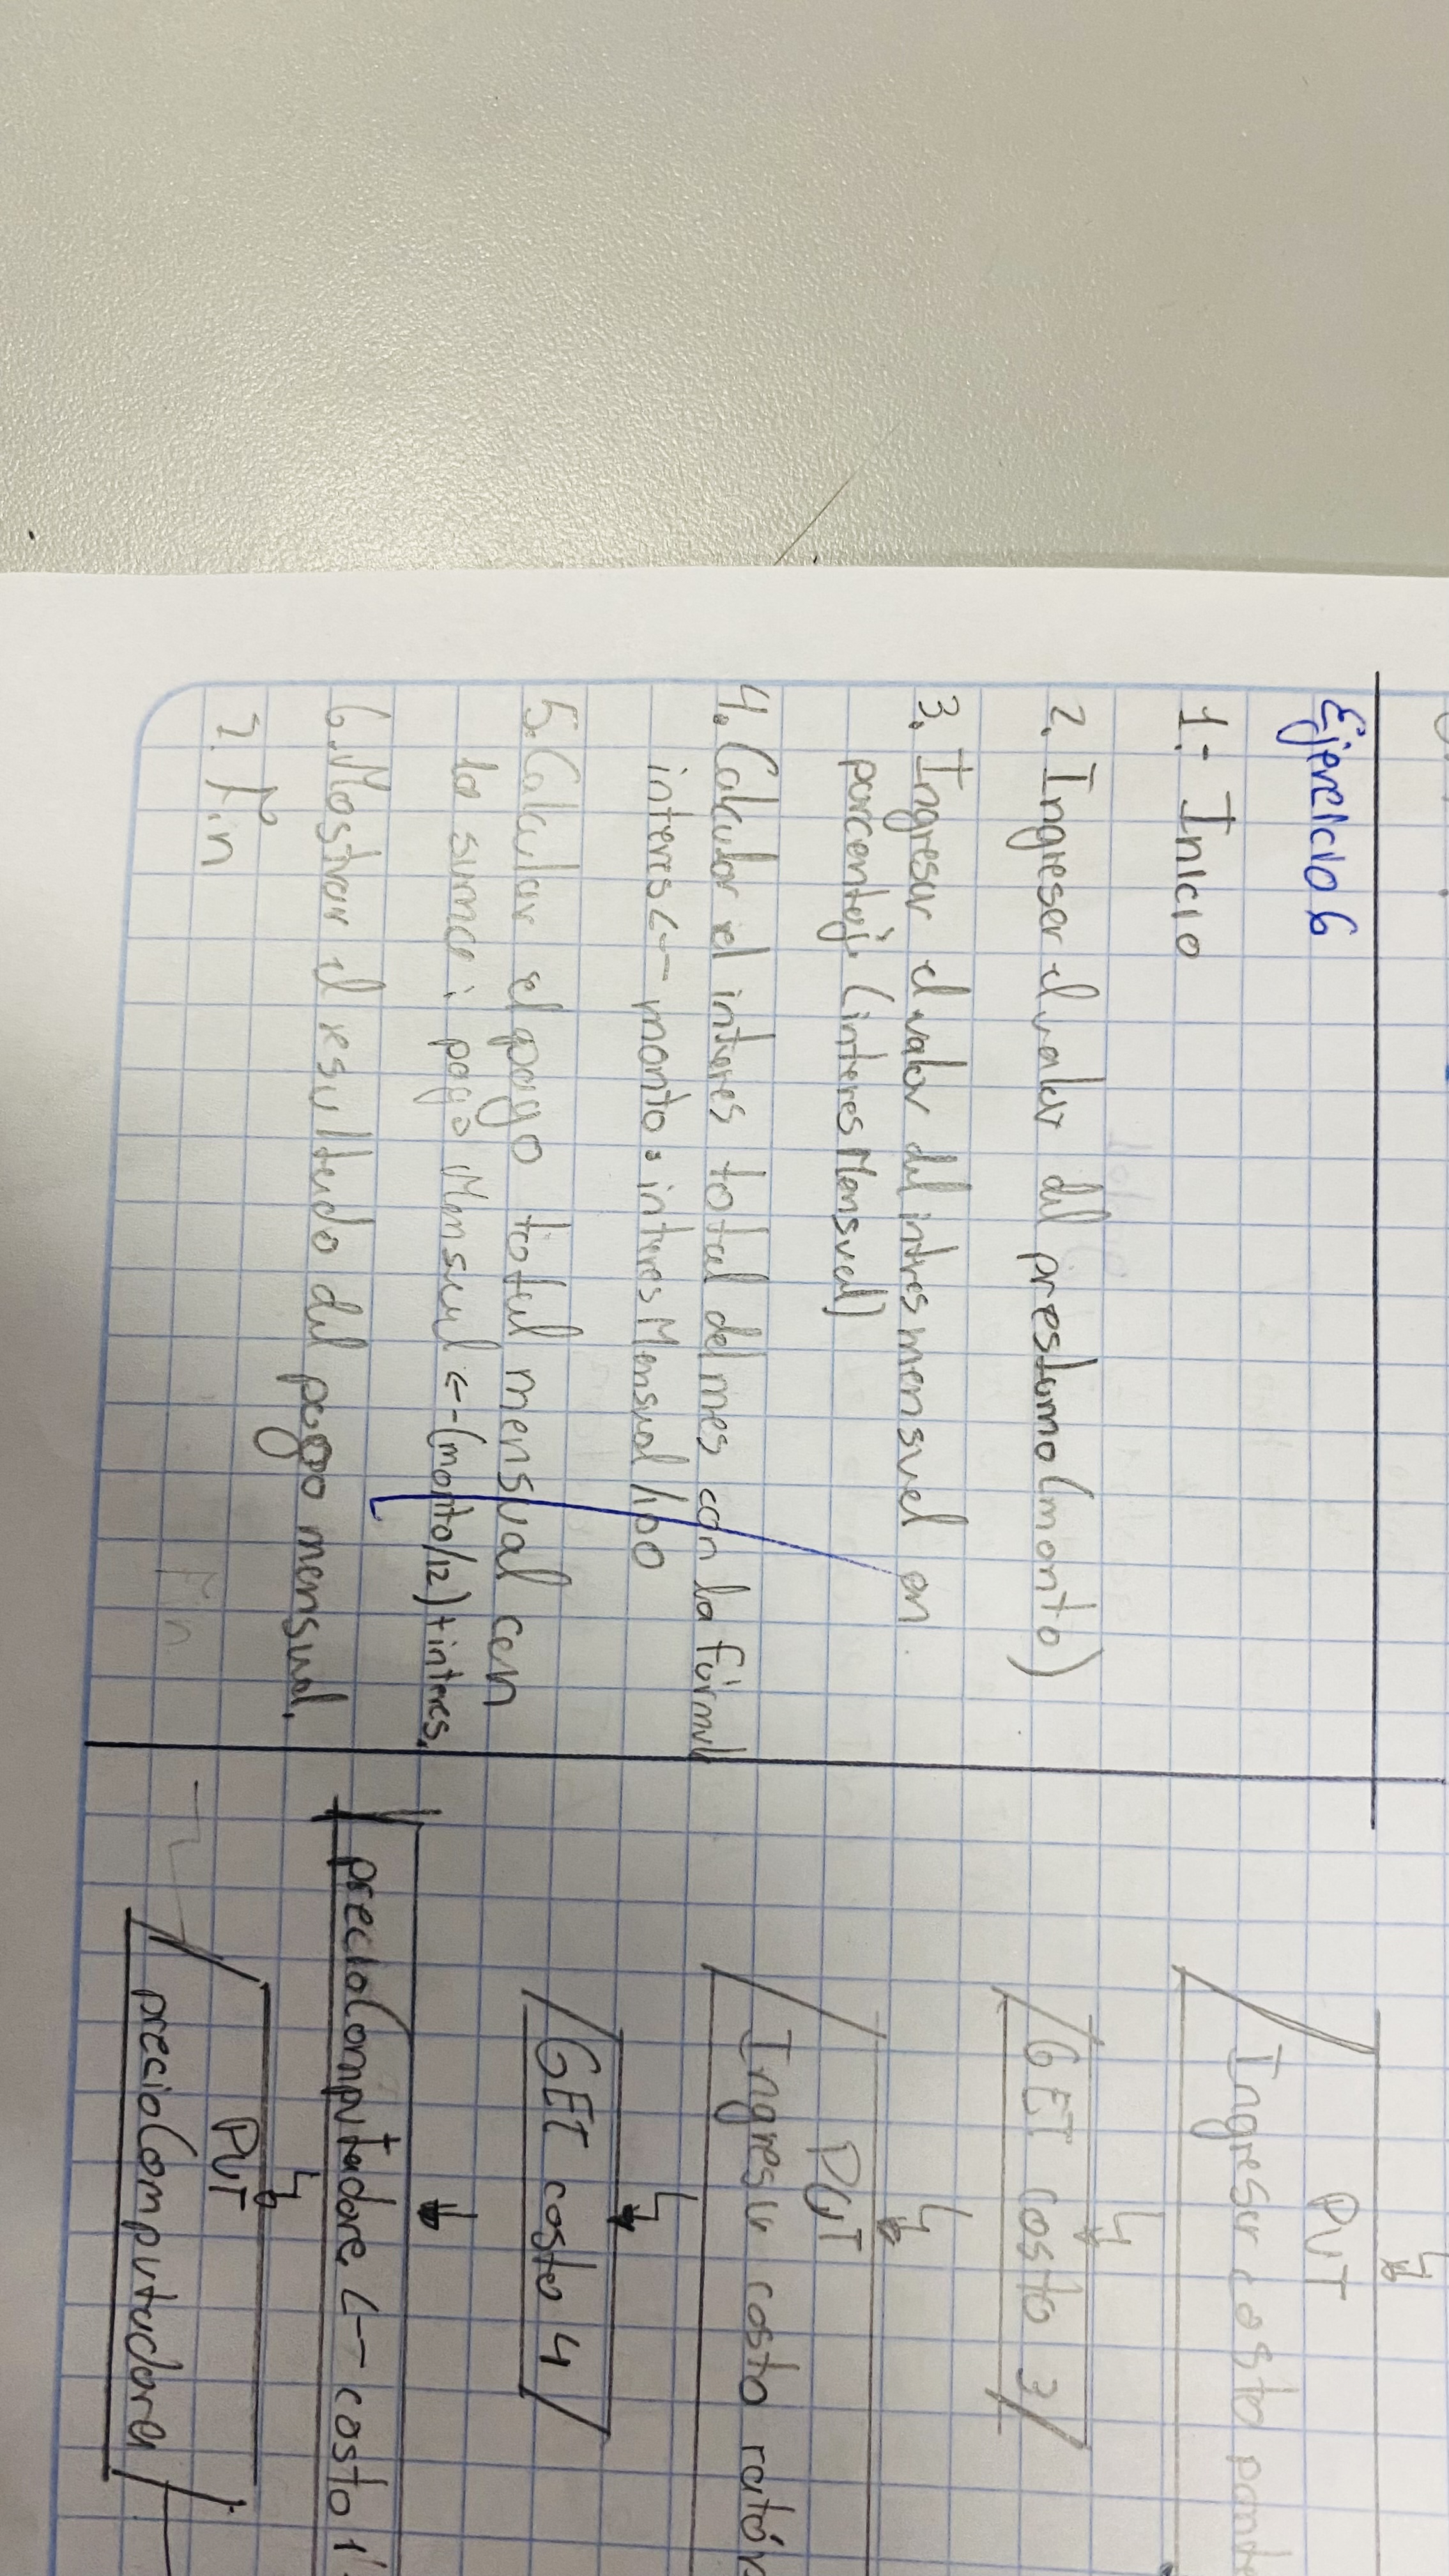 Ejercicio 6
1.- Inicio
2. Ingresar el valor del prestamo (monto)
3. Ingresar el valor del intres mensuel en
porcentaje (interesMensual)
4. Calcular el interes total del mes con la fórmul
interes <-- monto * interesMensual/100
5. Calcular el pago total mensual con
la suma: pago Mensual <-- (monto/12) + interes.
6. Mostrar el resultado del pago mensual.
7. Fin
Fin
PUT
Ingresar costo
GET costo 3
PUT
Ingresu costo ratón
GET costo 4
precioComputadora <-- costo 1
PUT
precioComputadora